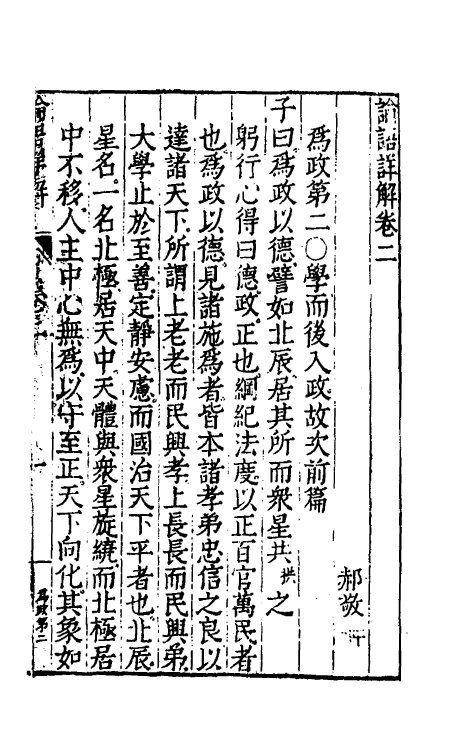 論語詳解卷二
郝敬
為政第二〇學而後入政故次前篇
子曰為政以德譬如北辰居其所而衆星共拱之
躬行心得曰德政正也綱紀法度以正百官萬民者
也為政以德見諸施為者皆本諸孝弟忠信之良以
達諸天下所謂上老老而民興孝上長長而民興弟
大學止於至善定靜安慮而國治天下平者也北辰
星名一名北極居天中天體與衆星旋繞而北極居
中不移人主中心無為以守至正天下向化其象如
論語詳解
為政第二